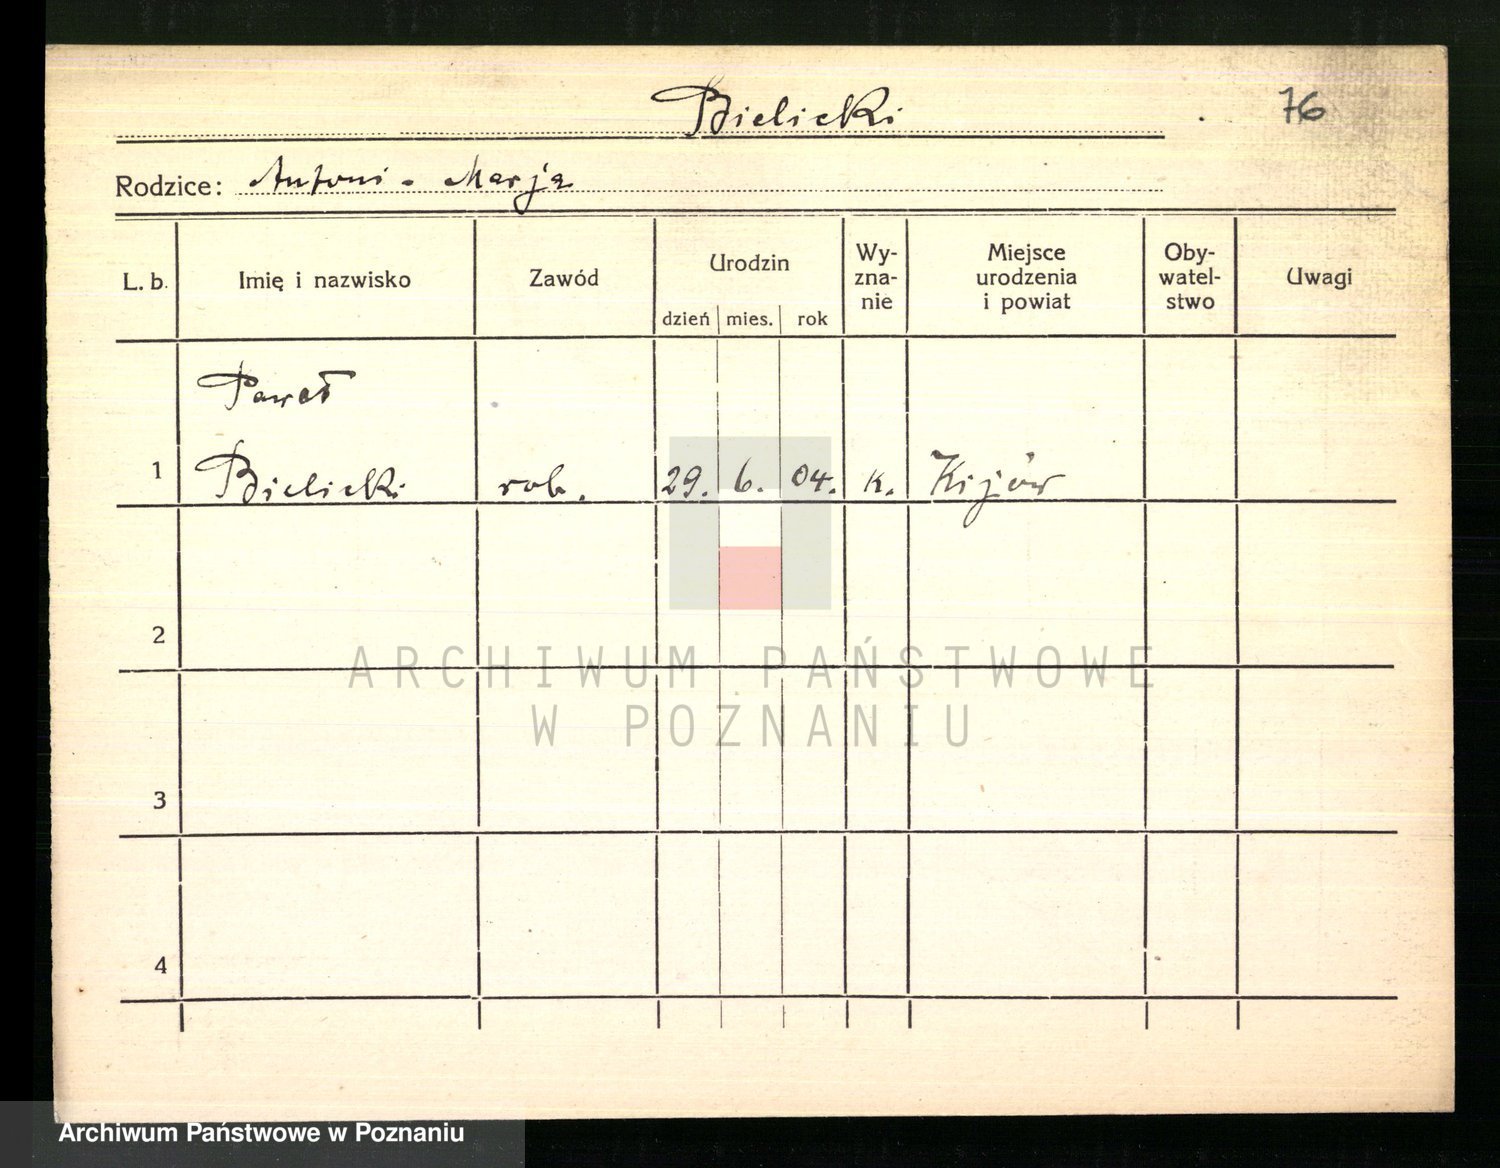 Bielicki
76
Rodzice: Antoni - Marja
L. b. Imię i nazwisko Zawód Urodzin dzień mies. rok Wy-zna-nie Miejsce urodzenia i powiat Oby-watel-stwo Uwagi
Paweł
1 Bielicki rob. 29. 6. 04. k. Kijów
2
ARCHIWUM PAŃSTWOWE
W POZNANIU
3
4
Archiwum Państwowe w Poznaniu